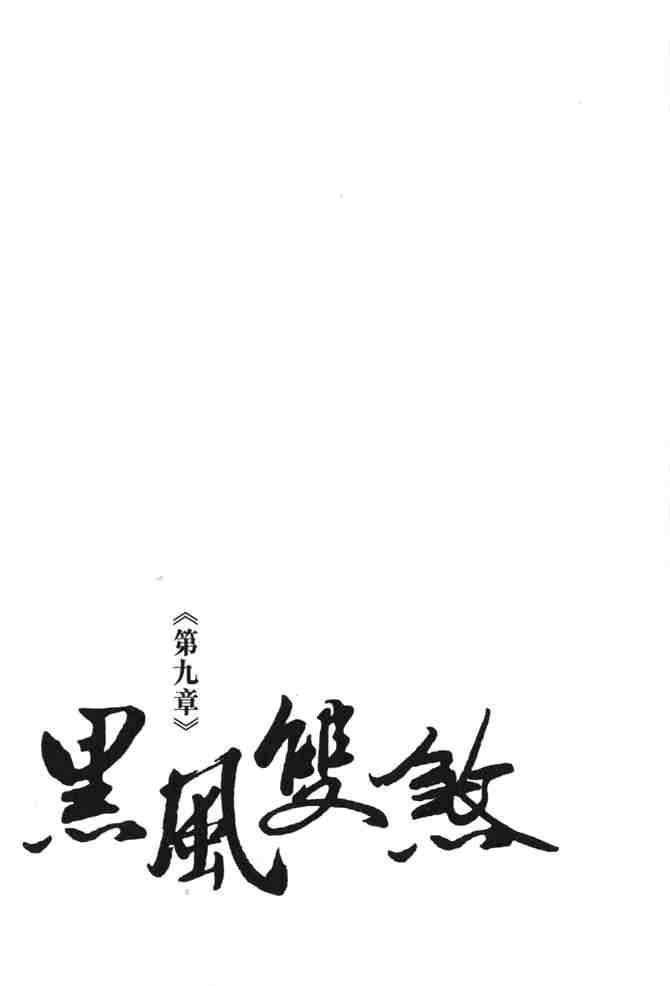 《第九章》
黑風雙煞